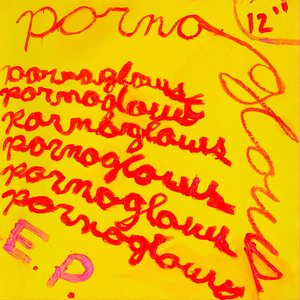 pornoglows
12"
pornoglows
pornoglows
pornoglows
pornoglows
pornoglows
pornoglows
E.P.